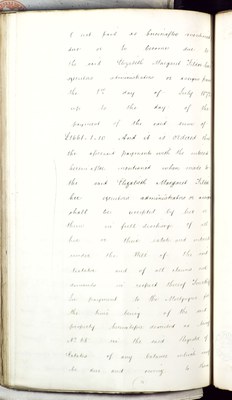 if not paid or hereafter
due or to become due to
the said Elizabeth Margaret her
executors administrators or assigns from
the 1st day of July
up to the day of the
payment of the said sum of
And it is ordered that
the aforesaid payments with the interest
hereinafter mentioned when made to
the said Elizabeth Margaret
her executors administrators or assigns
shall be accepted by her or
them in full discharge of all
her or their estate and interest
under the Will of the said
testator and of all claims and
demands in respect thereof
for payment to the Mortgagee for
the time being of the said
property hereinafter described as
No in the said Register of
titles of any balance which may
be due and owing to them